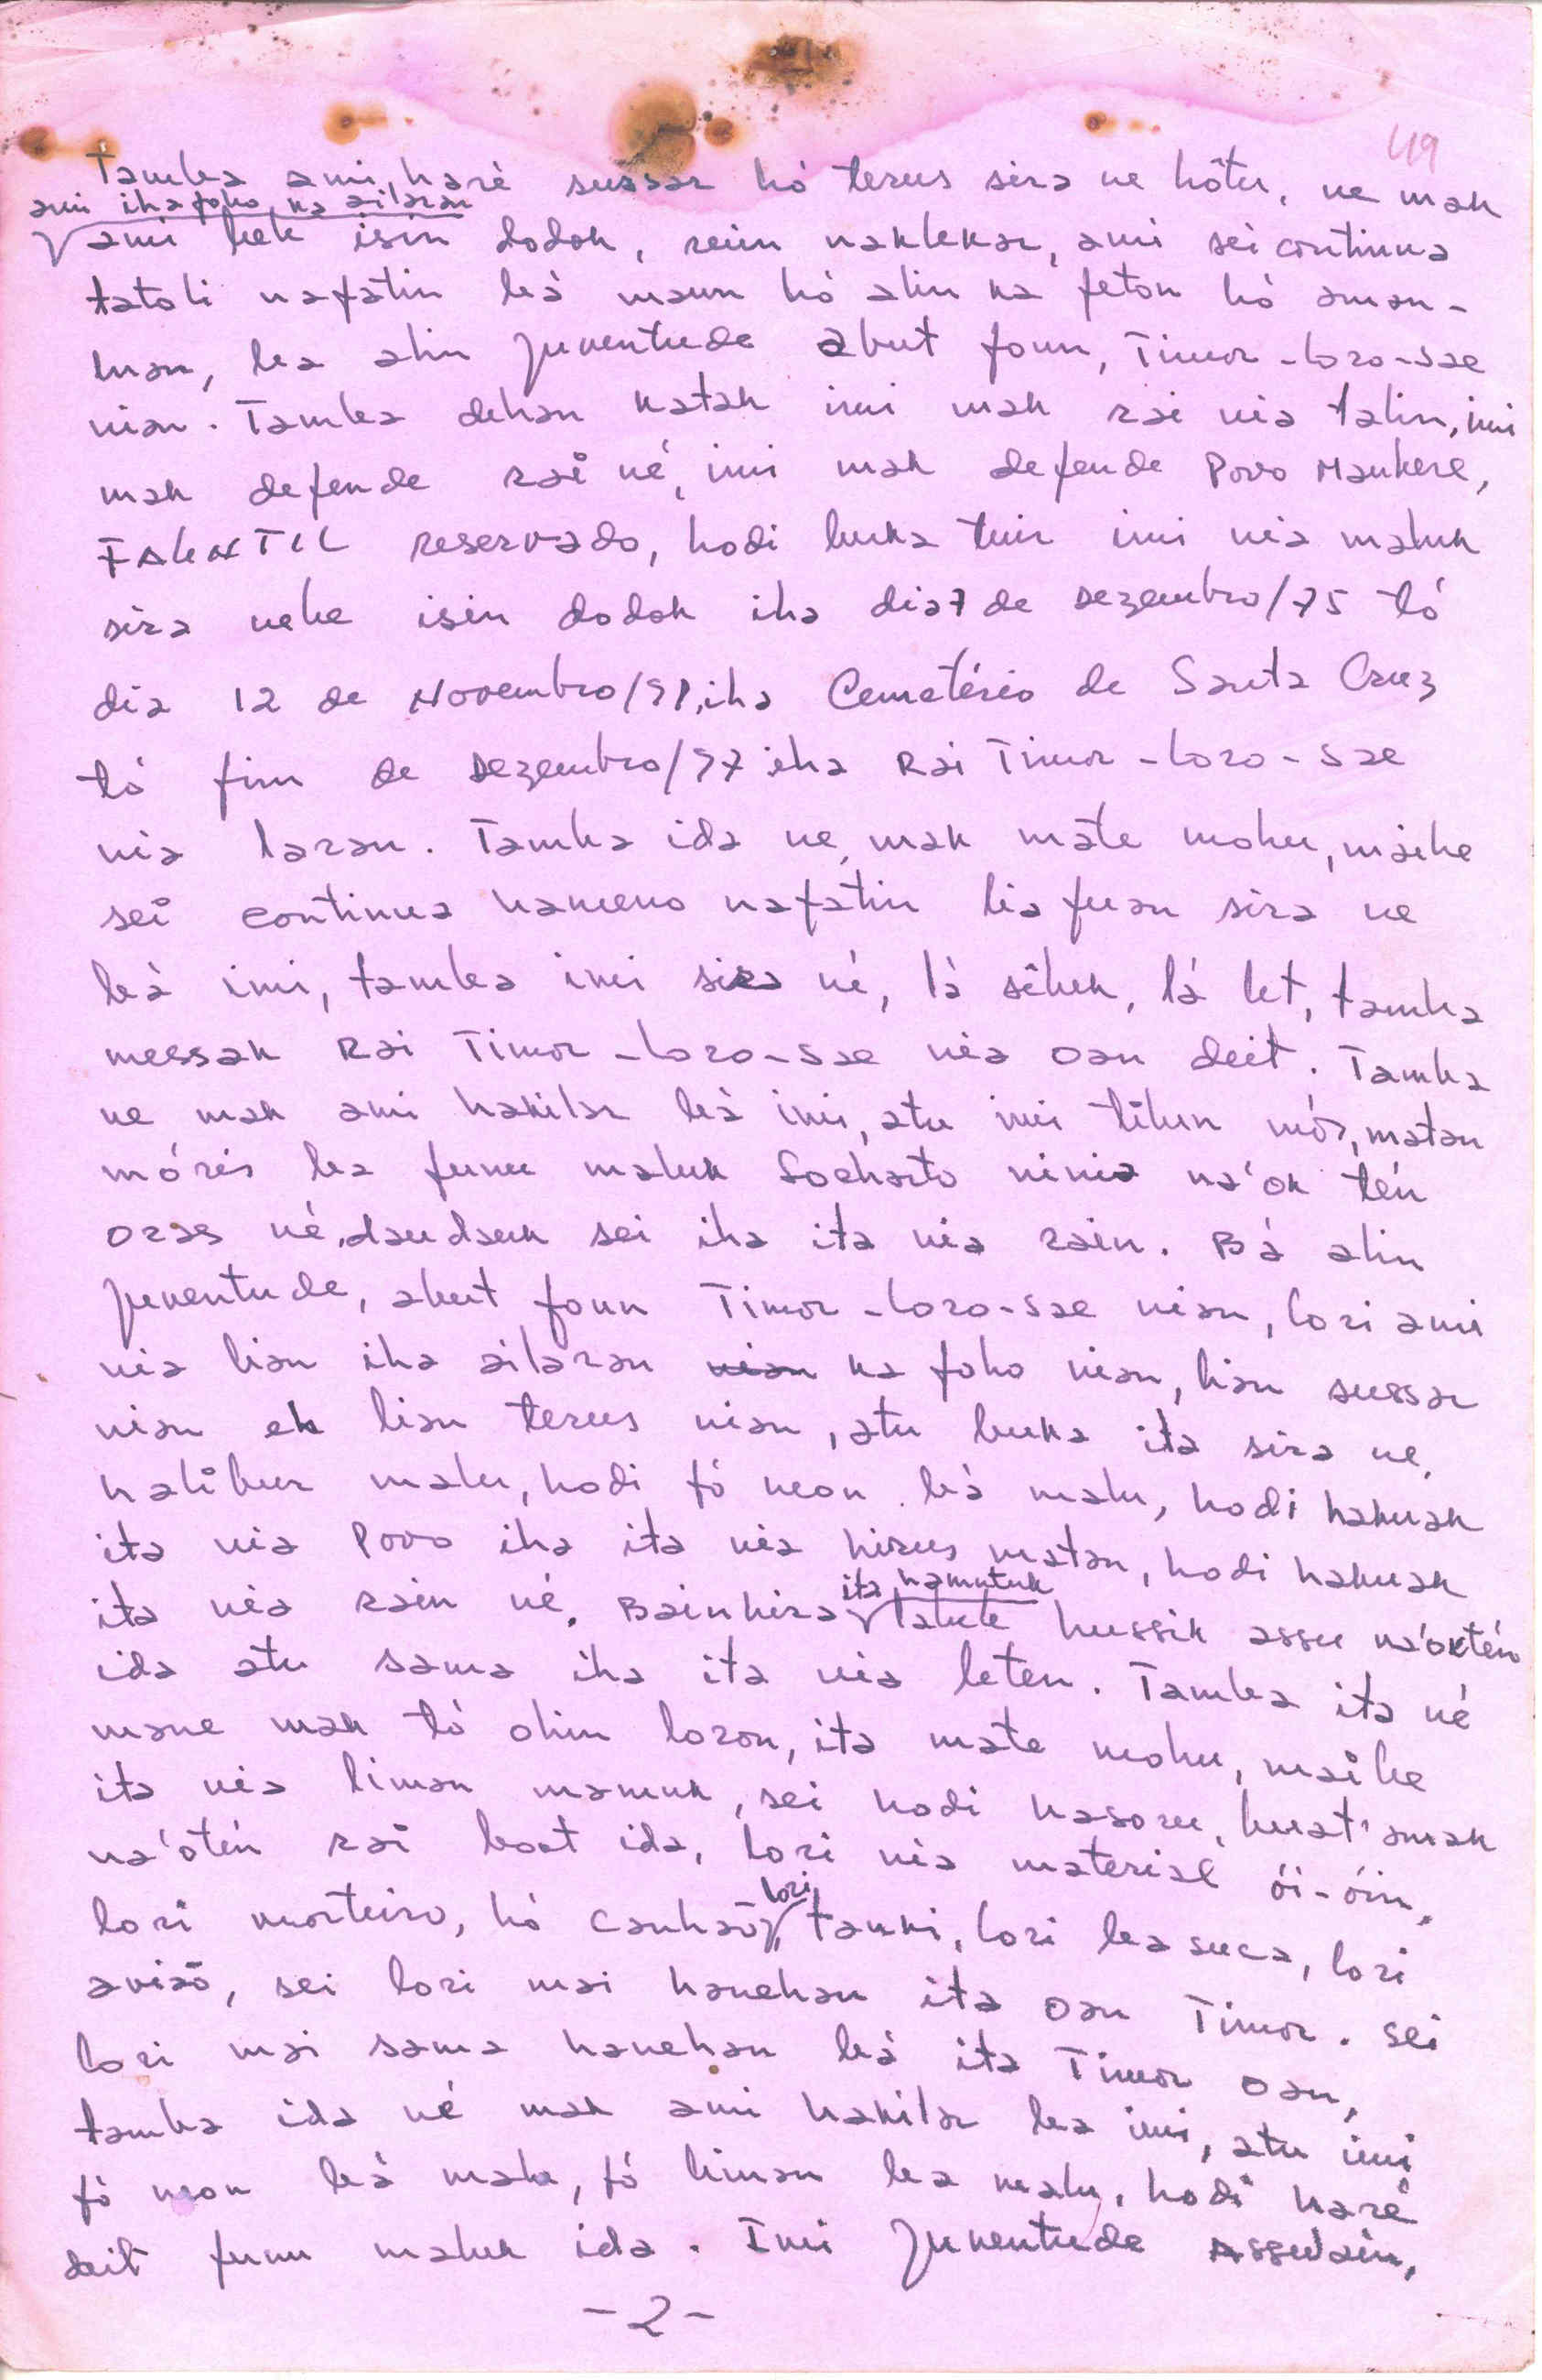 49
Tamba ami haré sussar hó terus sira ne hôtu, ne mak
ami iha foho ka ailaran
ami bele isin dodok, ruin naklekar, ami sei continua
tatoli nafatin bá maun hó alin ka feton hó aman-
lman, ba alin Juventude abut foun, Timor-Loro-Sae
nian. Tamba dehan katak imi mak rai nia talin, imi
mak defende rai né, imi mak defende Povo Maubere,
FALNTIL reservado, hodi buka tuir imi nia maluk
sira nebe isin dodok iha dia 7 de Dezembro/75 tó
dia 12 de Novembro/91, iha Cemetério de Santa Cruz
tó fim de Dezembro/97 iha Rai Timor-Loro-Sae
nia laran. Tamba ida ne, mak mate mohu, maibe
sei continua hameno nafatin liafuan sira ne
bá imi, tamba imi sira né, lá sibek, lá let, tamba
messak Rai Timor-Loro-Sae nia oan deit. Tamba
ne mak ami hakilar bá imi, atu imi tilun mós, matan
móris ba funu maluk Soeharto ninia na'ok tén
oras né, daudauk sei iha ita nia rain. Bá alin
Juventude, abut foun Timor-Loro-Sae nian, lori ami
nia lian iha ailaran nian ka foho nian, lian sussar
nian ek lian terus nian, atu buka ita sira ne,
halibur malu, hodi fó neon bá malu, hodi hakuak
ita nia Povo iha ita nia hirus matan, hodi hakuak
ita hamutuk
ita nia rain né. Bainhira labele hussik assu na'oktén
ida atu sama iha ita nia leten. Tamba ita né
mane mak tó ohin loron, ita mate mohu, maibe
ita nia liman mamuk, sei hodi hasoru, buat' anak
na'otén rai boot ida, lori nia material ói-óin,
lori
lori morteiro, hó canhaõ, tanki, lori basuca, lori
aviaõ, sei lori mai hanehan ita oan Timor. Sei
lori mai sama hanehan bá ita Timor oan,
tamba ida né mak ami hakilar ba imi, atu imi
fó neon bá malu, fó liman ba malu, hodi haré
deit funu maluk ida. Imi Juventude Assuwain,
-2-